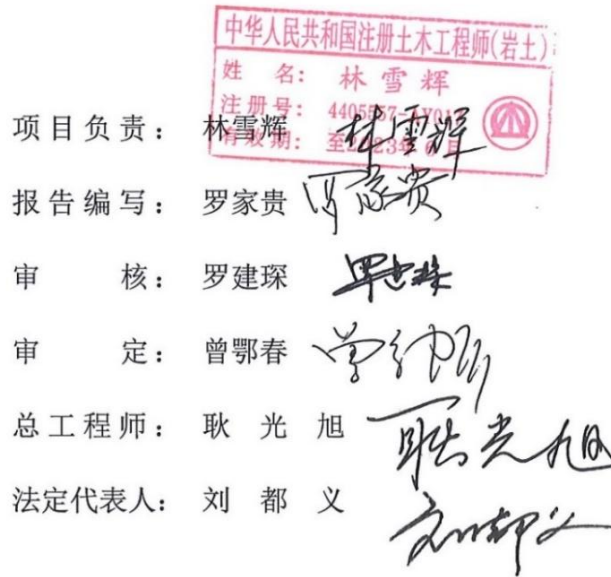 中华人民共和国注册土木工程师(岩土)
姓 名: 林雪辉
注册号: 4405557-AY0
有效期: 至2023年6月
项目负责: 林雪辉 林雪辉
报告编写: 罗家贵 罗家贵
审 核: 罗建琛
审 定: 曾鄂春
总工程师: 耿光旭 耿光旭
法定代表人: 刘都义 刘都义